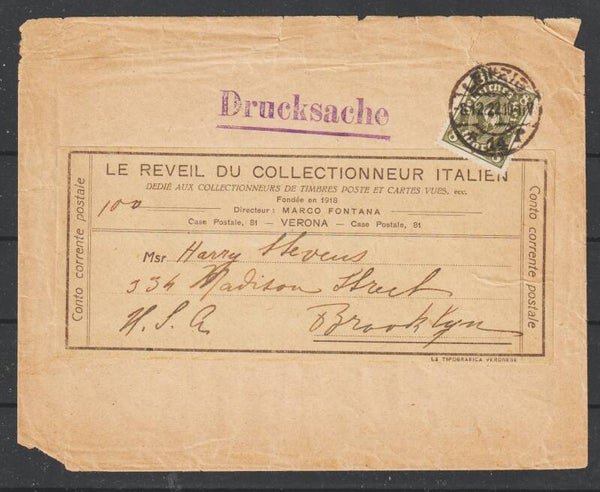 Drucksache
LEIPZIG
LE REVEIL DU COLLECTIONNEUR ITALIEN
DEDIÉ AUX COLLECTIONNEURS DE TIMBRES POSTE ET CARTES VUES, ecc.
Fondée en 1918
100
Directeur : MARCO FONTANA
Case Postale, 81 — VERONA — Case Postale, 81
Conto corrente postale
Msr Harry Stevens
334 Madison Street
U.S.A Brooklyn
Conto corrente postale
LA TIPOGRAFICA VERONESE